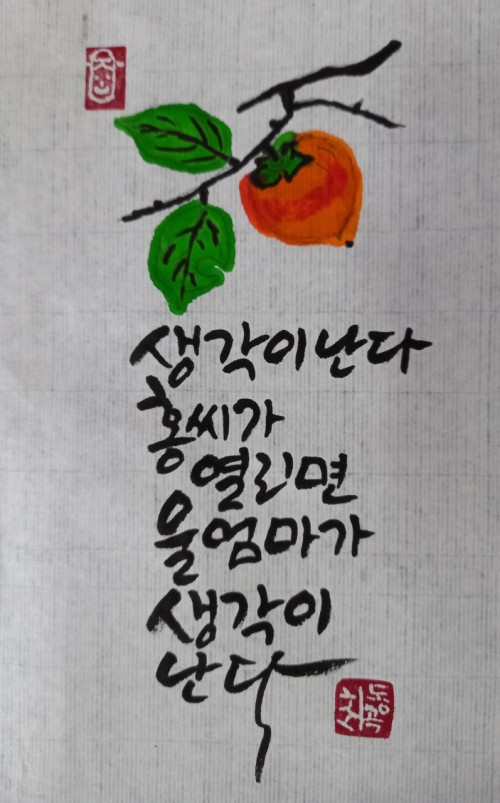 생각이난다
홍씨가
열린면
울엄마가
생각이
난다